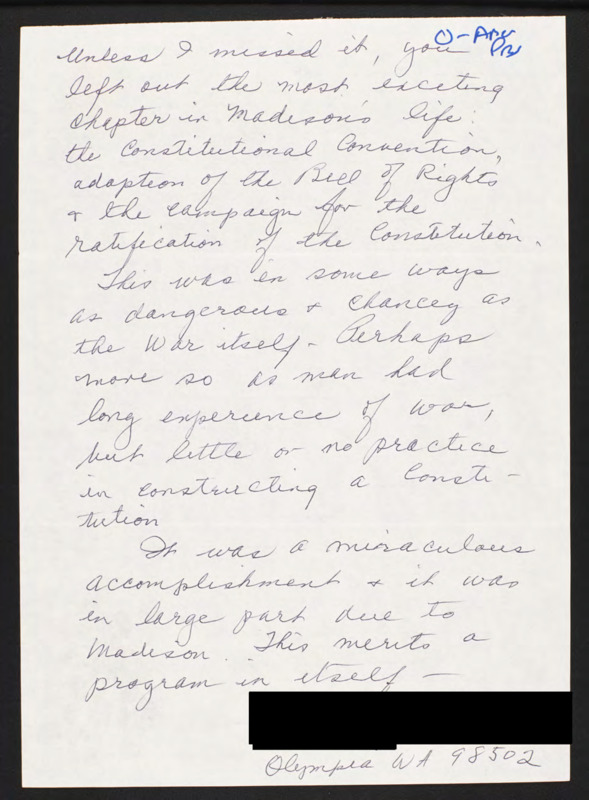 O - Any
Unless I missed it, you
left out the most exceting
chapter in Madison's life:
the Constitutional Convention,
adaption of the Bill of Rights
& the campaign for the
ratification of the Constitution.
This was in some ways
as dangerous & chancey as
the War itself - Perhaps
more so as man had
long experience of war,
but little or no practice
in constructing a Consti-
tution
It was a miraculous
accomplishment & it was
in large part due to
Madison. This merits a
program in itself -
Olympia WA 98502